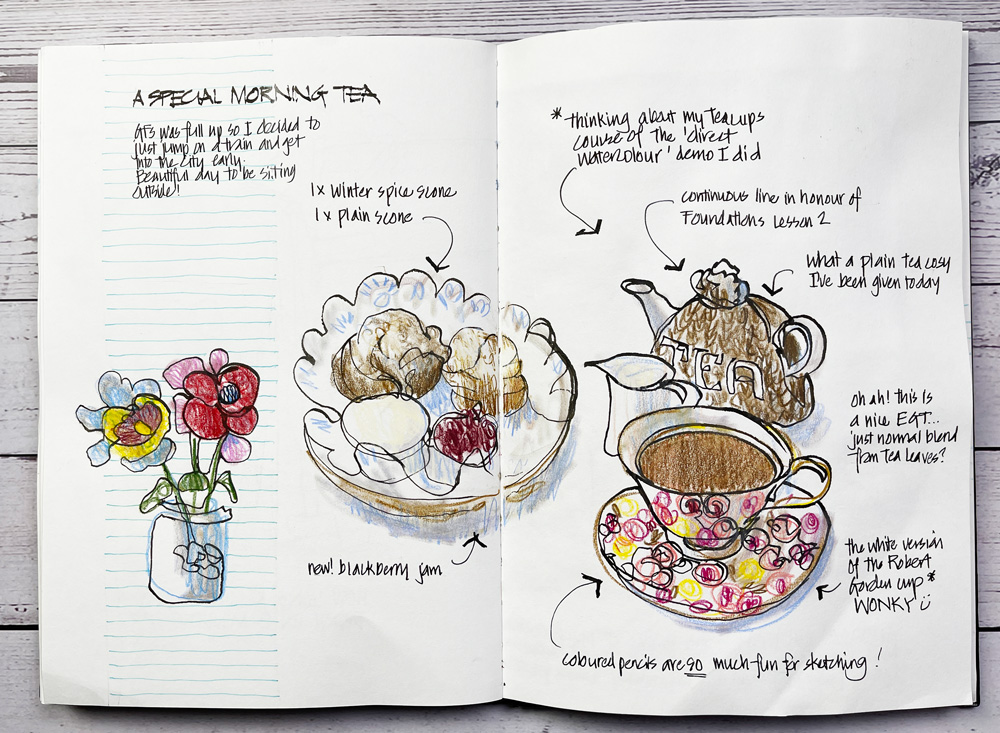 A SPECIAL MORNING TEA
GFs was full up so I decided to
just jump on a train and get
into the city early.
Beautiful day to be siting
outside!
1x winter spice scone
1x plain scone
new! blackberry jam
* thinking about my Teacups
course of the 'direct
watercolour' demo I did
continuous line in honour of
Foundations Lesson 2
what a plain tea cosy
I've been given today
TEA
oh ah! this is
a nice EGT...
just normal blend
from Tea Leaves?
the white version
of the Robert
Gorden cup *
WONKY
coloured pencils are so much fun for sketching!